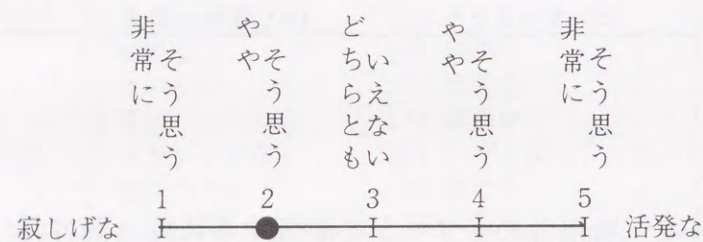 非常に
そう思う
やや
そう思う
どちらとも
いえない
やや
そう思う
非常に
そう思う
1 2 3 4 5
寂しげな 活発な